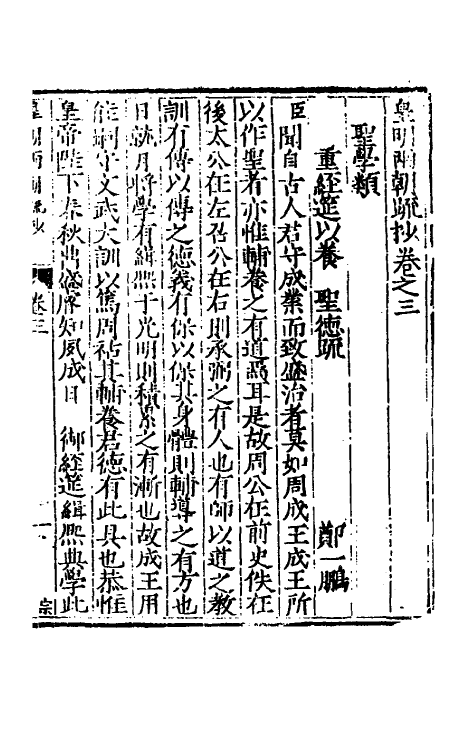 皇明兩朝疏抄卷之三
聖學類
重經筵以養 聖德疏 鄭一鵬
臣聞自古人君守成業而致盛治者莫如周成王成王所
以作聖者亦惟輔養之有道焉耳是故周公在前史佚在
後太公在左召公在右則承弼之有人也有師以道之教
訓有傅以傅之德義有保以保其身體則輔導之有方也
日就月將學有緝熙于光明則積累之有漸也故成王用
能嗣守文武大訓以為周祜其輔養君德有此具也恭惟
皇帝陛下春秋鼎盛睿知夙成日 御經筵緝熙典學此
皇明兩朝疏抄 卷三 一 宗